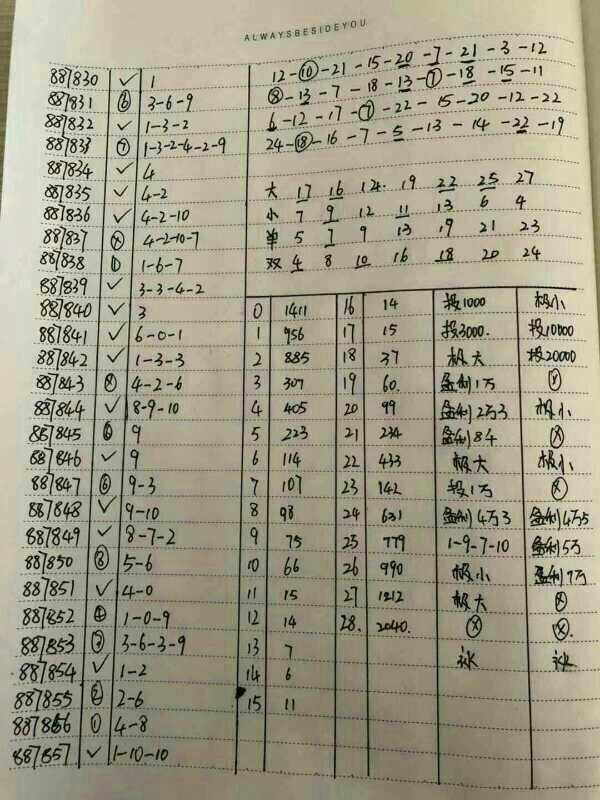 ALWAYSBESIDEYOU
887830 ✓ 1
887831 ⑥ 3-6-9
887832 ✓ 1-3-2
887833 ⑦ 1-3-2-4-2-9
887834 ✓ 4
887835 ✓ 4-2
887836 ✓ 4-2-10
887837 ⓧ 4-2-10-7
887838 ① 1-6-7
887839 ✓ 3-3-4-2
887840 ✓ 3
887841 ✓ 6-0-1
887842 ✓ 1-3-3
887843 4-2-6
887844 ✓ 8-9-10
887845 ⑥ 9
887846 ✓ 9
887847 ⑥ 9-3
887848 ✓ 9-10
887849 ✓ 8-7-2
887850 ⑧ 5-6
887851 ✓ 4-0
887852 1-0-9
887853 3-6-3-9
887854 ✓ 1-2
887855 2-6
887856 ① 4-8
887857 ✓ 1-10-10
12-⑩-21-15-20-7-21-3-12
⑧-13-7-18-13-⑦-18-15-11
6-12-17-⑦-22-15-20-12-22
24-⑱-16-7-5-13-14-22-19
大 17 16 14 19 22 25 27
小 7 9 12 11 13 6 4
单 5 7 9 13 19 21 23
双 4 8 10 16 18 20 24
0 1411 16 14 投1000 极小
1 956 17 15 投3000. 投10000
2 885 18 37 极大 投20000
3 307 19 60 盈利1万
4 405 20 99 盈利2万3 极小
5 223 21 234 盈利84 ⓧ
6 114 22 433 极大 极小
7 107 23 142 投1万 ⓧ
8 98 24 631 盈利4万3 盈利4万5
9 75 25 779 1-9-7-10 盈利5万
10 66 26 990 极小 盈利7万
11 15 27 1212 极大 ⓧ
12 14 28. 2040. ⓧ ⓧ.
13 7
14 6
15 11